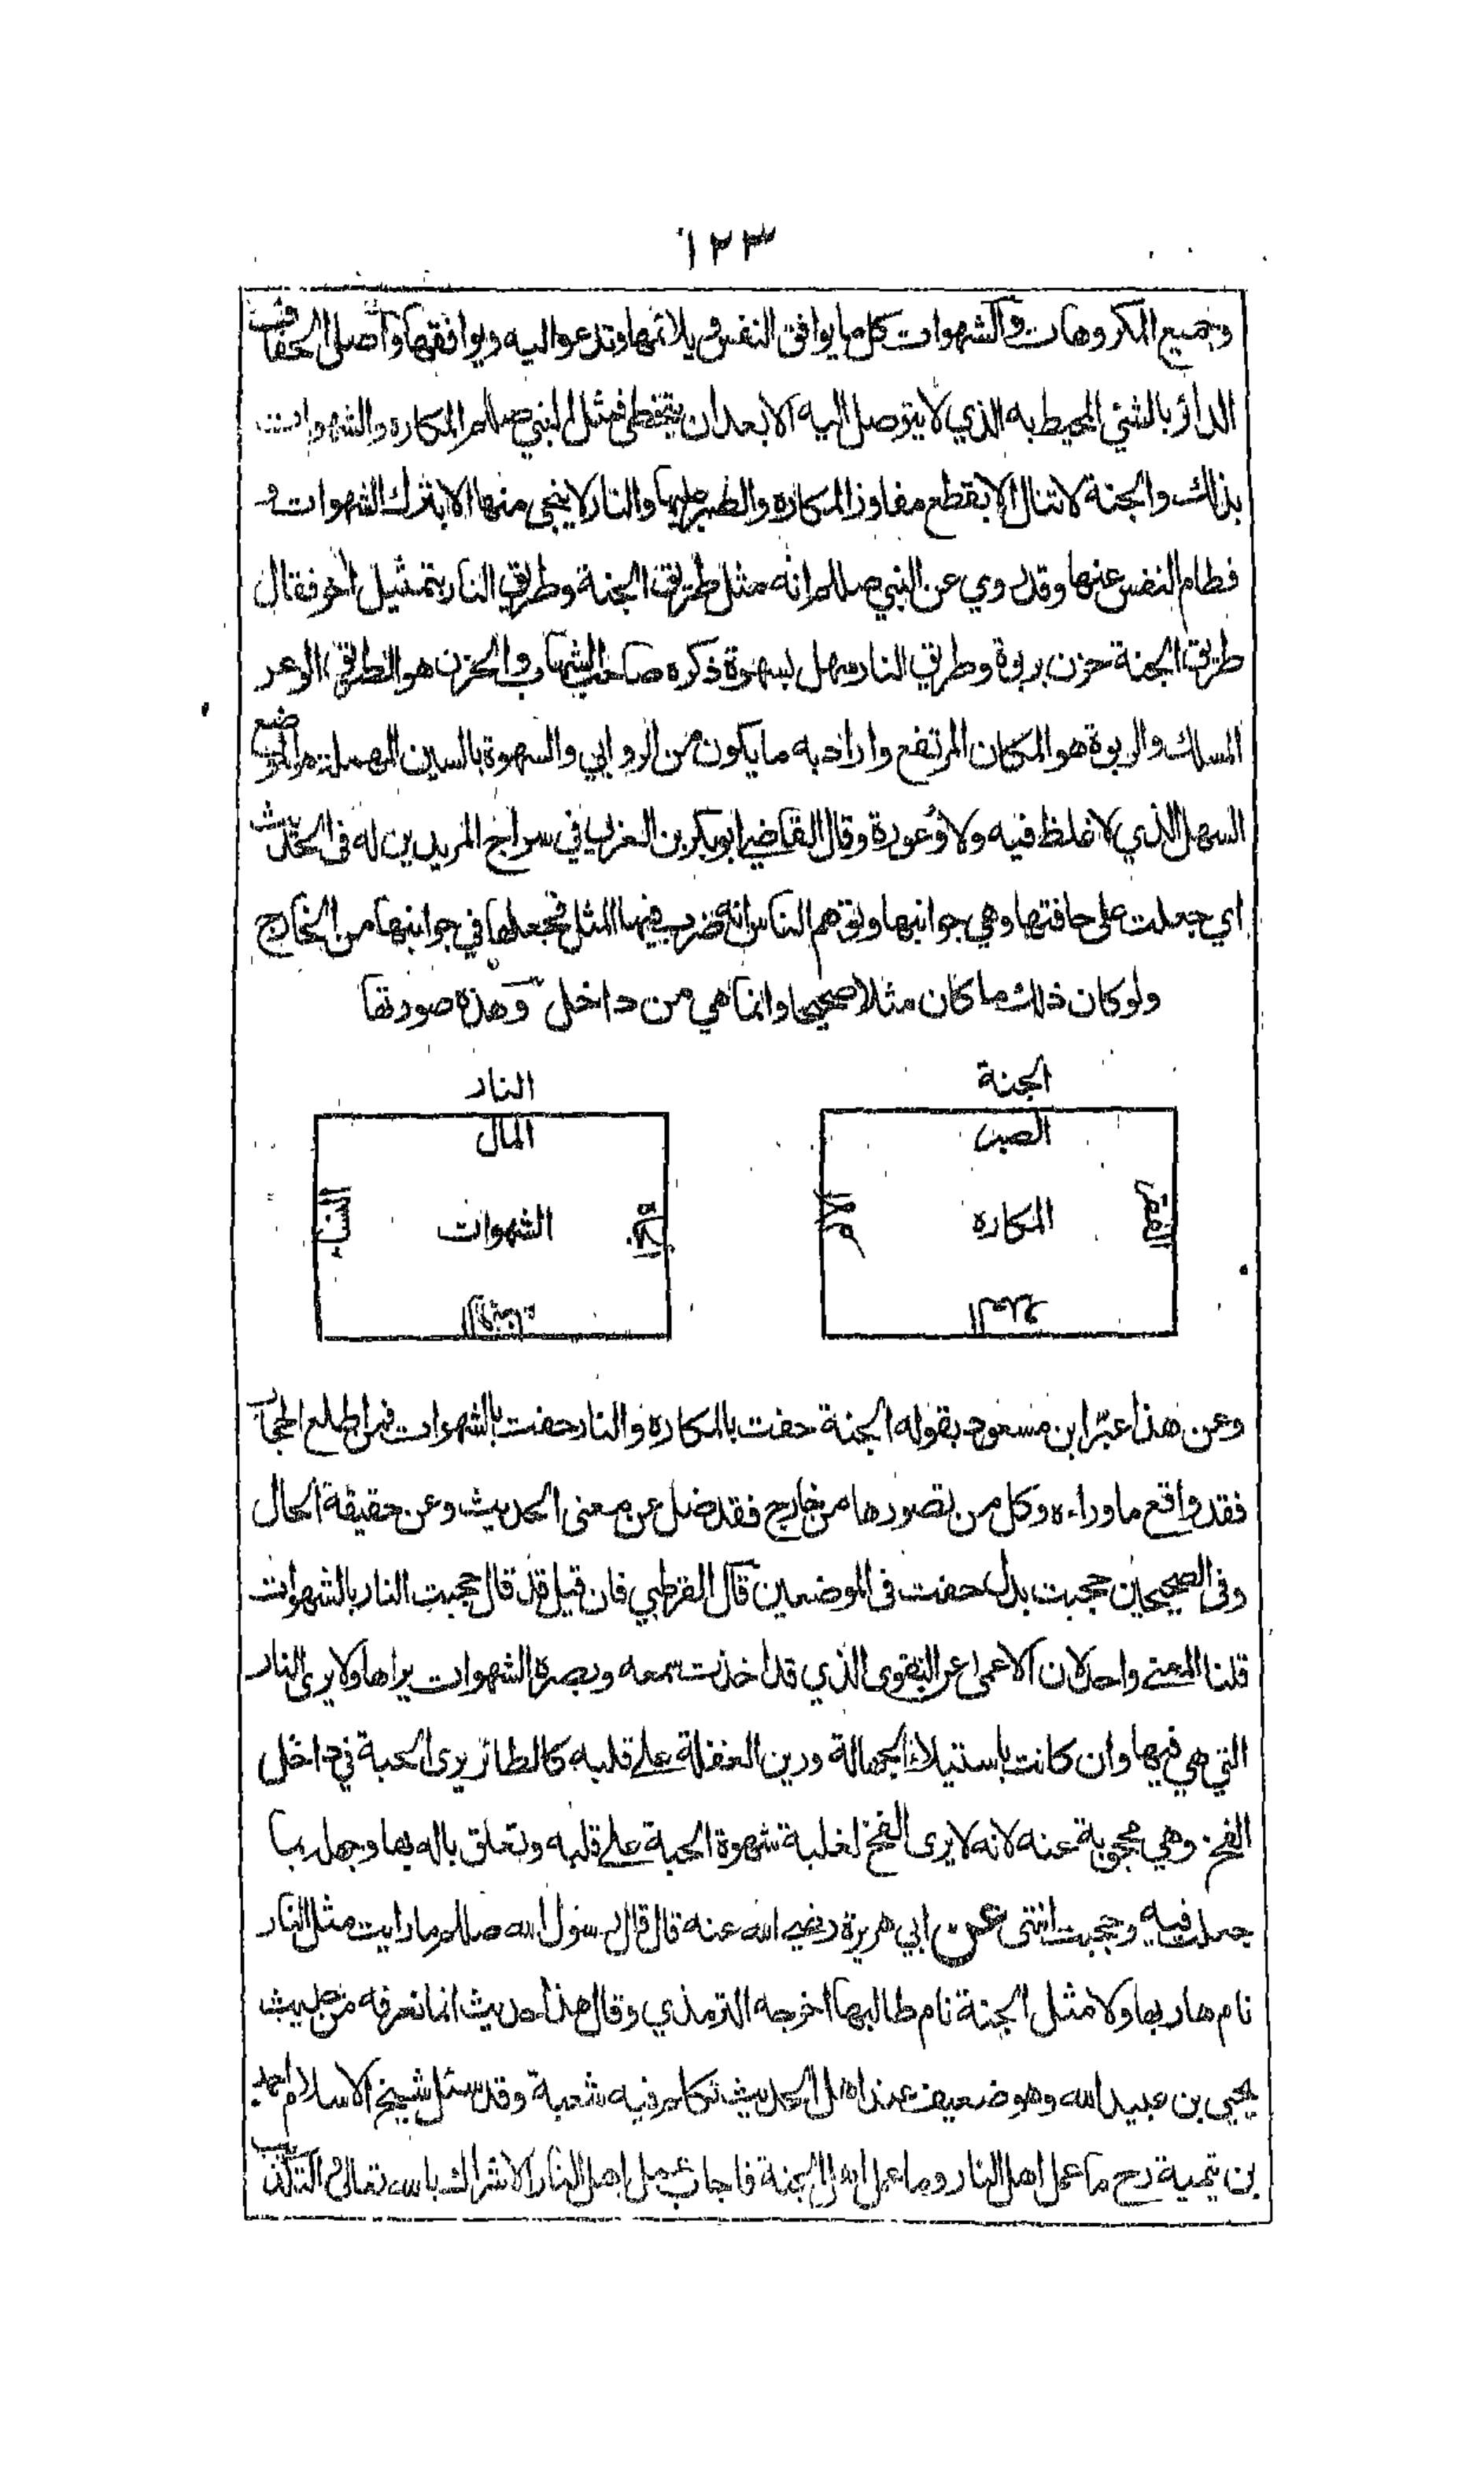 ١٢٣
وجميع المكروهات والشهوات كل ما يوافق النفس ويلائمها وتدعو اليه ويوافقها واصل الحفاف
الدائر بالشئ المحيط به الذي لا يتوصل اليه الا بعد ان يتخطى فمثل النبي صللم المكاره والشهوات
بذلك والجنة لا تنال الا بقطع مفاوز المكاره والصبر عليها والنار لا ينجى منها الا بترك الشهوات و
فطام النفس عنها وقد روي عن النبي صللم انه مثل طريق الجنة وطريق النار بتمثيل اخر فقال
طريق الجنة حزن بربوة وطريق النار سهل بسهوة ذكره صاحب الشهاب والحزن هو الطريق الوعر
المسلك والربوة هو المكان المرتفع واراد به ما يكون من الروابي والسهوة بالسين المهملة هو الموضع
السهل الذي لا غلظ فيه ولا وعورة وقال القاضي ابو بكر بن العربي في سراج المريدين له فى الحديث
اي جعلت على حافتها وهي جوانبها وتوهم الناس انه ضرب فيها المثل فجعلها في جوانبها من الخارج
ولو كان ذلك ما كان مثلا صحيحا وانما هي من داخل وهذه صورتها
الجنة
النار
الصبر
المال
المكاره
الشهوات
وعن هذا عبّر ابن مسعود بقوله الجنة حفت بالمكاره والنار حفت بالشهوات فمن اطلع الحجاب
فقد واقع ما وراءه وكل من تصورها من خارج فقد ضل عن معنى الحديث وعن حقيقة الحال
وفى الصحيحين حجبت بدل حفت فى الموضعين قال القرطبي فان قيل قد قال حجبت النار بالشهوات
قلنا المعنى واحد لان الاعمى عن التقوى الذي قد اخذت سمعه وبصره الشهوات يراها ولا يرى النار
التي هي فيها وان كانت باستيلاء الجهالة ورين الغفلة على قلبه كالطائر يرى الحبة في داخل
الفخ وهي محجوبة عنه لانه لا يرى الفخ لغلبة شهوة الحبة على قلبه وتعلق باله بها وجهله بما
جعلت فيه وحجبت انتهى عن ابي هريرة رضي الله عنه قال قال رسول الله صللم ما رايت مثل النار
نام هاربها ولا مثل الجنة نام طالبها اخرجه الترمذي وقال هذا حديث انما نعرفه من حديث
يحيى بن عبيد الله وهو ضعيف عند اهل الحديث تكلم فيه شعبة وقد سئل شيخ الاسلام احمد
بن تيمية رح ما عمل اهل النار وما عمل اهل الجنة فاجاب عمل اهل النار الاشراك بالله تعالى والتكذيب